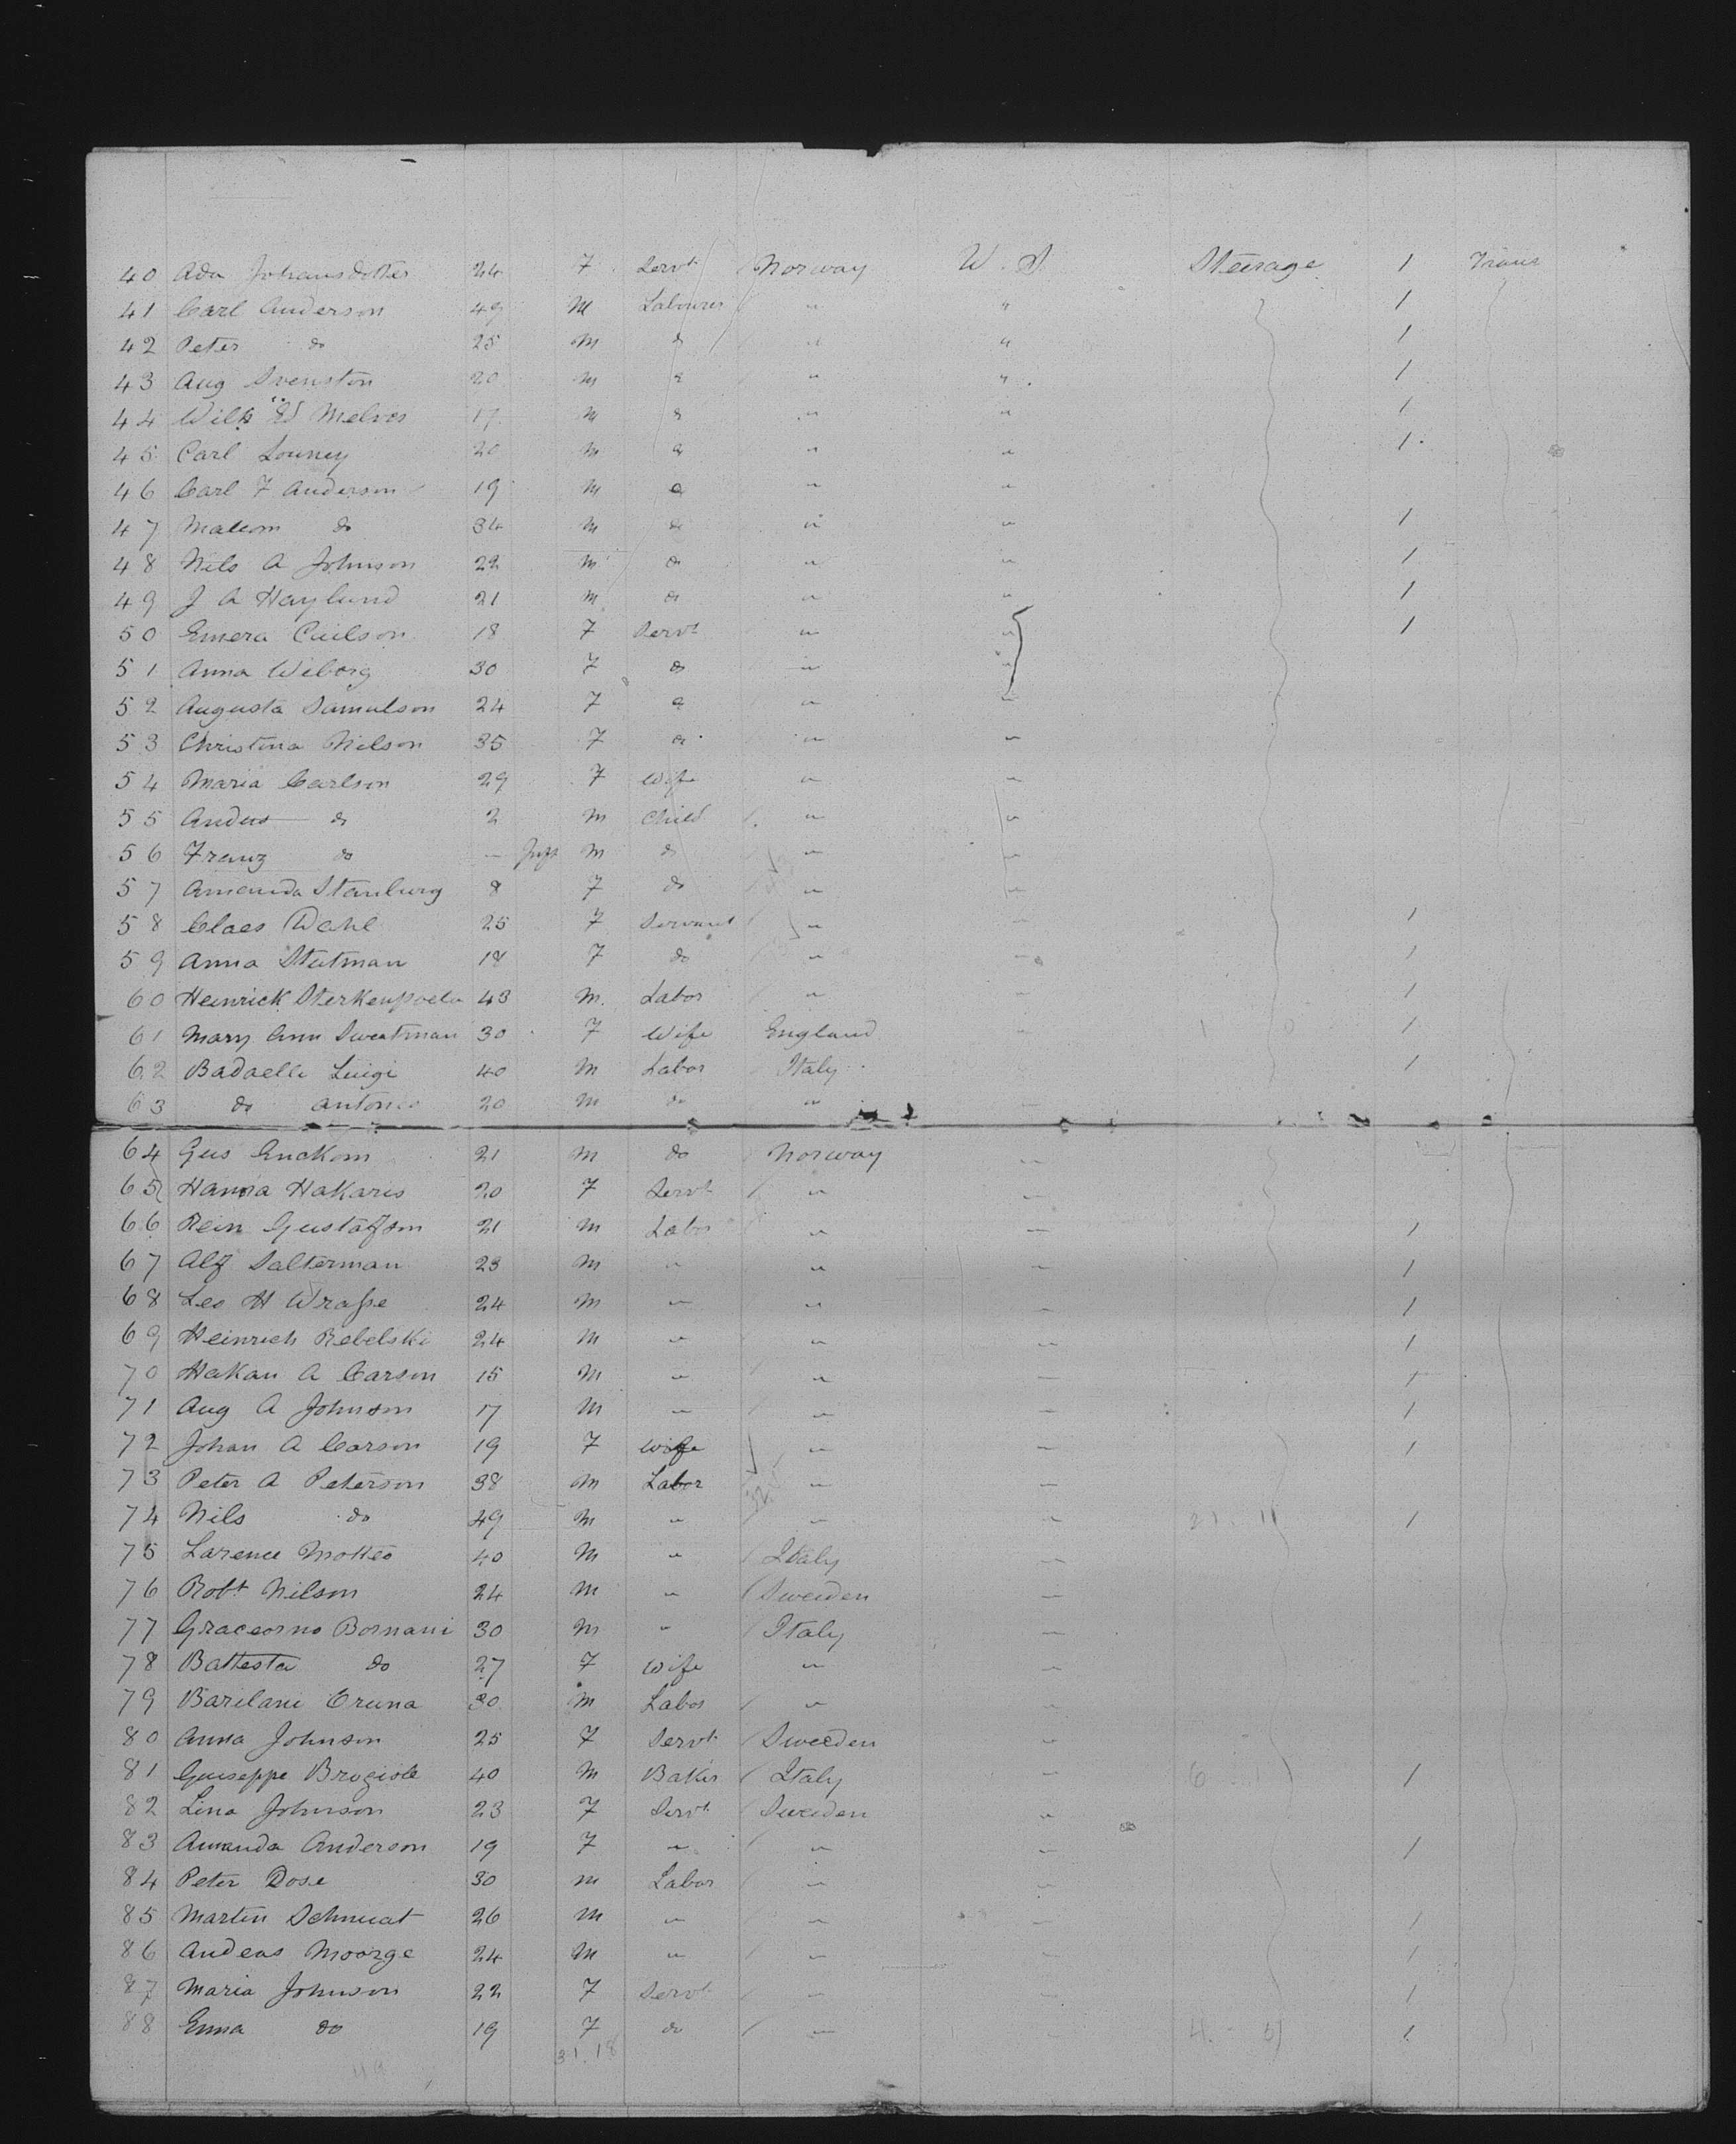 40 Ada Johansdotter 24 F Servt Norway U.S. Steerage 1 Trans
41 Carl Anderson 49 M Labourer " " 1
42 Peter do 25 M do " " 1
43 Aug Svenston 20 M do " " 1
44 17 M do " " 1
45 Carl 20 M do " " 1
46 Carl F Anderson 19 M do " "
47 Malcom do 34 M do " " 1
48 Nils A Johnson 22 M do " " 1
49 J A Haylund 21 M do " " 1
50 Emera 18 F Servt " " 1
51 Anna Wiborg 30 F do " "
52 Augusta Samulson 24 F do " "
53 Christina Nilson 35 F do " "
54 Maria Carlson 29 F Wife " "
55 Andus do 2 M Child " "
56 Franz do - Inft M do " "
57 Amanda Stanburg 8 F do " "
58 Claes Dahl 25 F Servant " " 1
59 Anna Stutman 18 F do " " 1
60 Heinrick 43 M. Labor " " 1
61 Mary Ann Sweatman 30 F Wife England " 1
62 Badaelli Luigi 40 M Labor Italy 1
63 do Antonio 20 M do "
64 Gus Enckom 21 M do Norway "
65 Hanna Hakaris 20 F Servt " "
66 Rein Gustafson 21 M Labor " " 1
67 Alf Salterman 23 M " " " 1
68 Leo H Wrasse 24 M " " " 1
69 Heinrich Rebelski 24 M " " " 1
70 Hakan A Carson 15 M " " " 1
71 Aug A Johnson 17 M " " " 1
72 Johan A Carson 19 F Wife " " 1
73 Peter A Peterson 38 M Labor " "
74 Nils do 49 M " " " 1
75 Larence Motteo 40 M " Italy "
76 Robt Nilson 24 M " Sweeden "
77 Graceorno Bornani 30 M " Italy "
78 Battesta do 27 F Wife " "
79 Barilani Cruna 30 M Labor " "
80 Anna Johnson 25 F Servt Sweeden "
81 Guiseppe Brogiole 40 M Baker Italy " 1
82 Lina Johnson 23 F Servt Sweeden "
83 Amanda Anderson 19 F " " " 1
84 Peter Dose 30 M Labor " "
85 Martin Schnuat 26 M " " " 1
86 Andeas Moorge 24 M " " " 1
87 Maria Johnson 22 F Servt " " 1
88 Emma do 19 F do " " 1
31.18